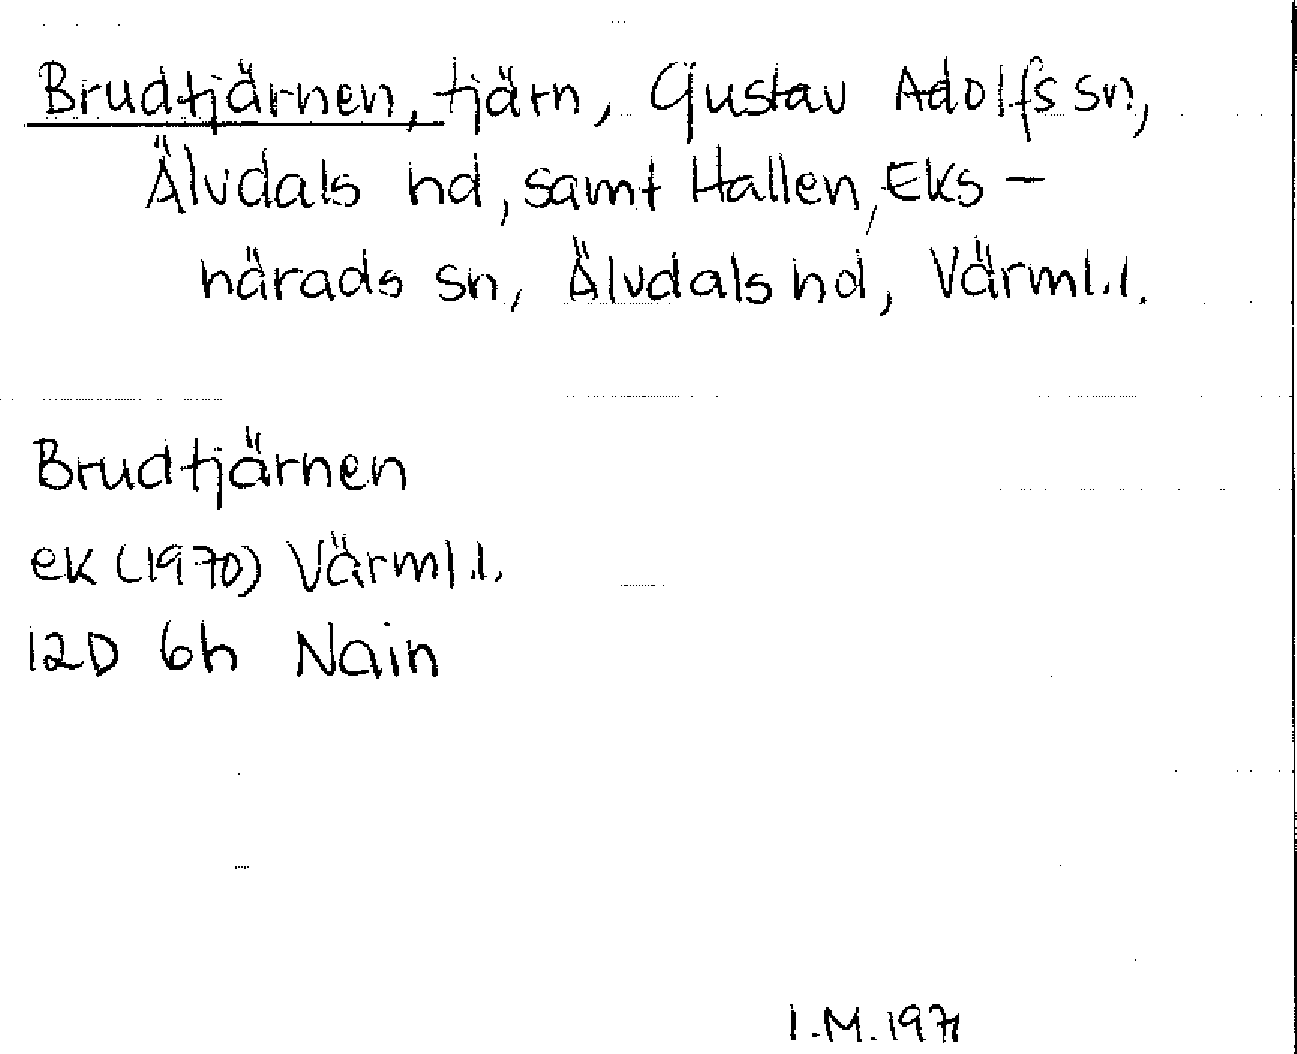 Brudtjärnen, tjärn, Gustav Adolfs sn,
Älvdals hd, samt Hallen, Eks-
härads sn, Älvdals hd, Värml.l.
Brudtjärnen
ek (1970) Värml.l.
12D 6h Nain
I.M. 1971